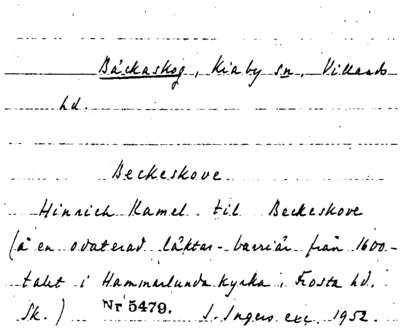 Bäckaskog, Kiaby sn, Villands
hd.
Beckeskove
Hinrich Ramel til Beckeskove
(å en odaterad läktar-barriär från 1600-
talet i Hammarlunda kyrka, Frosta hd.
Sk.) Nr 5479. I. Ingers exc. 1952.